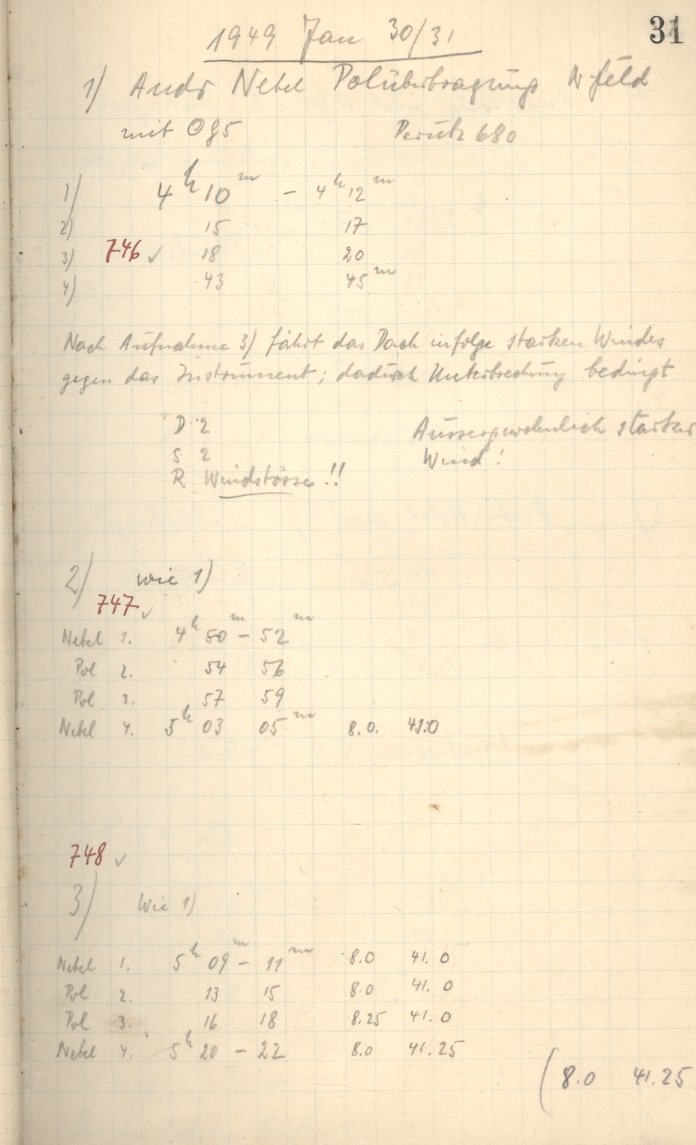 31
1949 Jan 30/31
1) Andr Nebel Polübertragung N-feld
mit OG5 Perutz 680
1) 4h 10m - 4h 12m
2) 15 17
3) 746 ✓ 18 20
4) 43 45m
Nach Aufnahme 3) fährt das Dach infolge starken Windes
gegen das Instrument; dadurch Unterbrechung bedingt
D 2 Aussergewöhnlich starker
S 2 Wind!
R Windstösse!!
2) wie 1)
747 ✓
Nebel 1. 4h 50m - 52m
Pol 2. 54 56
Pol 3. 57 59
Nebel 4. 5h 03 05m 8.0. 41.0
748 ✓
3) Wie 1)
Nebel 1. 5h 09m - 11m 8.0 41.0
Pol 2. 13 15 8.0 41.0
Pol 3. 16 18 8.25 41.0
Nebel 4. 5h 20 - 22 8.0 41.25
(8.0 41.25